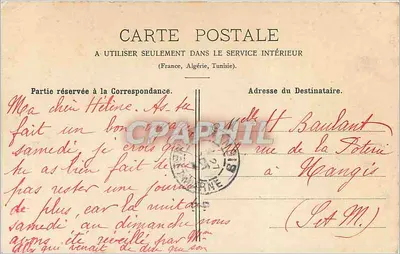 CARTE POSTALE
A UTILISER SEULEMENT DANS LE SERVICE INTÉRIEUR
(France, Algérie, Tunisie).
Partie réservée à la Correspondance.
Adresse du Destinataire.
Ma chère Hélène. As-tu
fait un bon
samedi, je crois que
tu as bien fait de
pas rester une journée
de plus, car la nuit de
samedi au dimanche nous
avons été réveillé par Mr
qui venait de dire que son
elle H Baulant
rue de la Poterie
à Nangis
(S et M)
CPAPHIL
MARNE
27